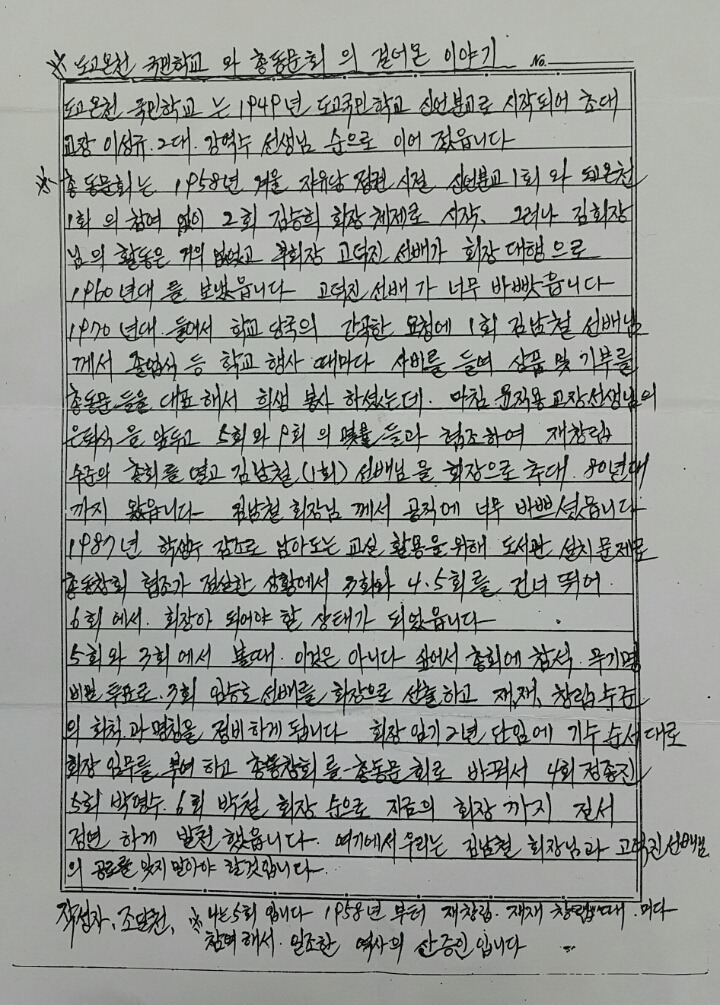 ※ 도고온천 국민학교 와 총동문회 의 걸어온 이야기 No.
도고온천 국민학교 는 1949년 도고국민학교 신언분교로 시작되어 초대
교장 이성규. 2대. 강역수 선생님 순으로 이어 졌읍니다
※ 총동문회는 1958년 겨울 자유당 집권 시절 신언분교 1회 와 도고온천
1회 의 참여 없이 2회 김승희 회장 체제로 시작. 그러나 김회장
님의 활동은 거의 없었고 부회장 고덕진 선배가 회장 대행 으로
1960년대 를 보냈읍니다 고덕진 선배 가 너무 바빳읍니다
1970 년대 들어서 학교 당국의 간곡한 요청에 1회 김남철 선배님
께서 졸업식 등 학교 행사 때마다 사비를 들여 상품 및 기부를
총동문 들을 대표 해서 희생 봉사 하셨는데. 마침 윤직용 교장 선생님의
은퇴식 을 앞두고 5회 와 9회 의 들과 협조하여 재창립
수준의 총회 를 열고 김남철 (1회) 선배님 을 회장으로 추대. 80년대
까지 왔읍니다 김남철 회장님 께서 공직에 너무 바쁘셨읍니다
1987년 학생수 감소로 남아도는 교실 활용을 위해 도서관 설치 문제로
총동창회 협조가 절실한 상황에서 3회와 4.5회를 건너 뛰어
6회 에서. 회장이 되어야 할 상태가 되었읍니다
5회와 3회 에서 볼때. 이것은 아니다 싶어서 총회에 참석. 무기명
비밀 투표로. 3회 임승호 선배를 회장으로 선출하고 재, 재, 창립 수준
의 회칙 과 명칭을 정비하게 됩니다 회장 임기 2년 단임에 기수 순서 대로
회장 임무를 부여 하고 총동창회 를 총동문 회로 바꿔서 4회 정종진
5회 박영수. 6회 박철 회장 순으로 지금의 회장 까지 질서
정연 하게 발전 했읍니다. 여기에서 우리는 김남철 회장님과 고덕진 선배님
의 공로를 잊지 말아야 할것입니다.
작성자. 조달천, ※ 나는 5회 입니다 1958년 부터 재창립. 재재 창립 때. 마다
참여 해서. 일조한 역사의 산증인 입니다